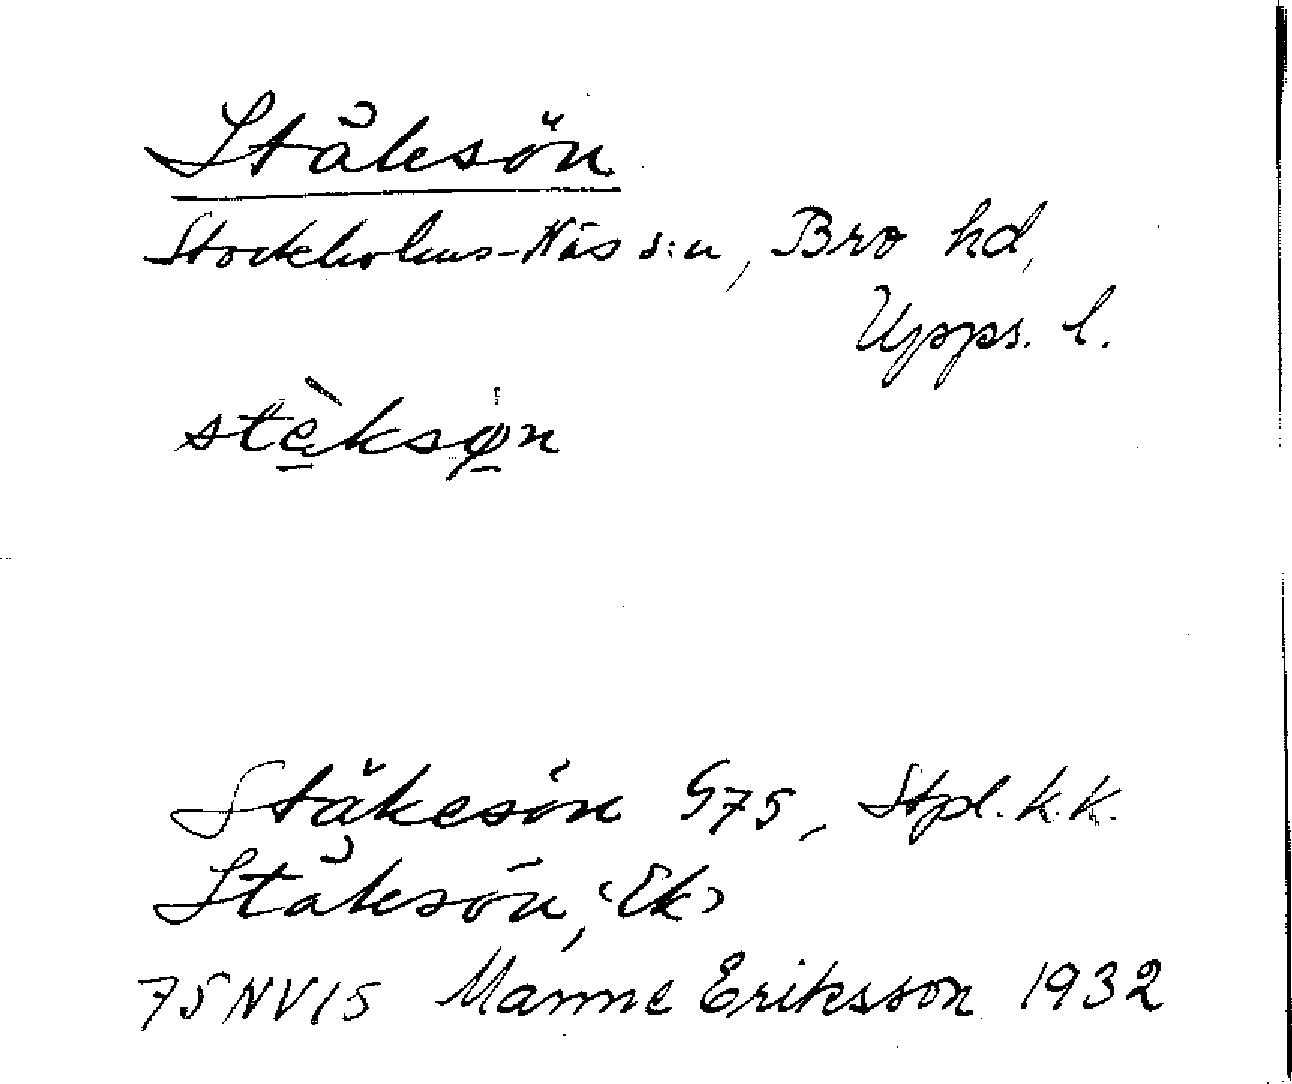 Ståksön
Stockholms-Näs s:n, Bro hd,
Upps. l.
stè̱ksø̱n
Stäkesön G75, Stpl. k.k.
Ståksön, (Ek)
75NV15 Manne Eriksson 1932